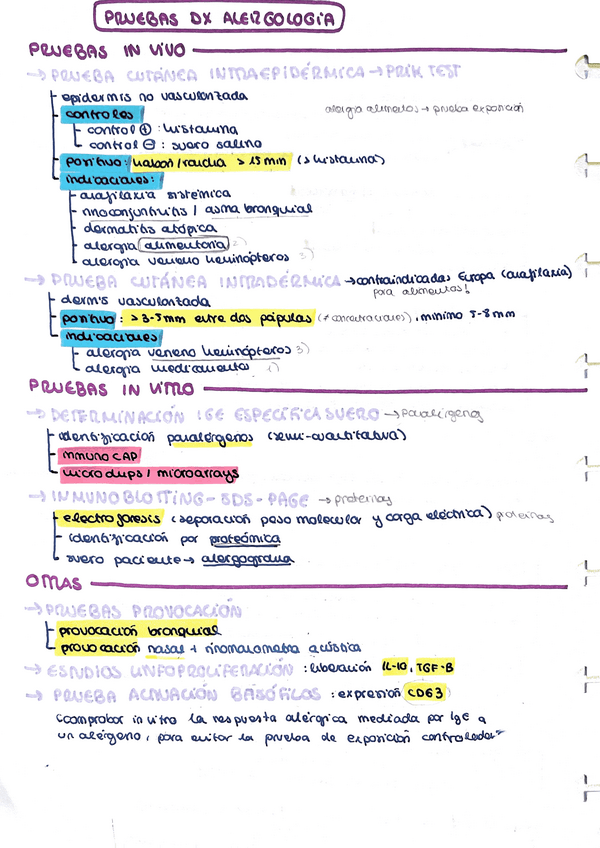 PRUEBAS DX ALERGOLOGIA
PRUEBAS IN VIVO
→ PRUEBA CUTÁNEA INTRAEPIDÉRMICA → PRIK TEST
epidermis no vascularizada
alergia alimentos → prueba exposición
controles
control ⊕ : histamina
control ⊖ : suero salino
positivo: habón/roncha > 15 min (> histamina)
indicaciones:
anafilaxia sistémica
rinoconjuntivitis / asma bronquial
dermatitis atópica
alergia alimentaria 2)
alergia veneno heminópteros 3)
→ PRUEBA CUTÁNEA INTRADÉRMICA → contraindicadas Europa (anafilaxia)
para alimentos!
dermis vascularizada
positivo: > 3-5mm entre dos pápulas (≠ concentraciones), mínimo 5-8mm
indicaciones
alergia veneno heminópteros 3)
alergia medicamentos 1)
PRUEBAS IN VITRO
→ DETERMINACIÓN IGE ESPECÍFICA SUERO → panalérgenos
identificación panalérgenos (semi-cuantitativa)
INMUNO CAP
microchips / microarrays
→ INMUNOBLOTTING - SDS - PAGE → proteínas
electroforesis (separación peso molecular y carga eléctrica) proteínas
identificación por proteómica
suero paciente → alergograma
OTRAS
→ PRUEBAS PROVOCACIÓN
provocación bronquial
provocación nasal + rinomanometria acústica
→ ESTUDIOS LINFOPROLIFERACIÓN : liberación IL-10, TGF-B
→ PRUEBA ACTIVACIÓN BASÓFILOS : expresión CD63
"comprobar in vitro la respuesta alérgica mediada por IgE a
un alérgeno, para evitar la prueba de exposición controlada"